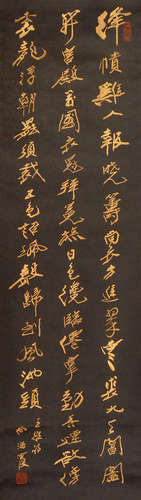 絳幘雞人報曉籌尚衣方進翠雲裘九天閶闔
開宮殿萬國衣冠拜冕旒日色纔臨僊掌動香煙欲傍
袞龍浮朝罷須裁五色詔珮聲歸到鳳池頭
王維詩